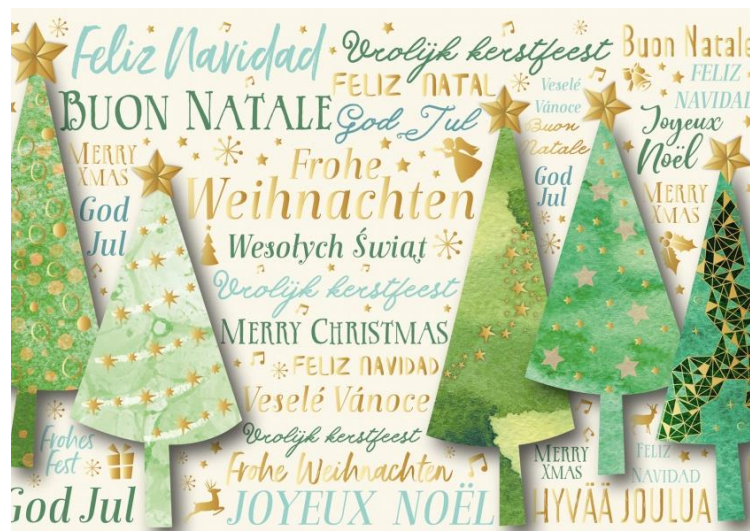 Feliz Navidad
Vrolijk kerstfeest
Buon Natale
FELIZ NATAL
Veselé
Vánoce
FELIZ
NAVIDAD
BUON NATALE
God Jul
Buon
Natale
Joyeux
Noël
MERRY
XMAS
Frohe
Weihnachten
God
Jul
MERRY
XMAS
God
Jul
Wesołych Świąt
Vrolijk kerstfeest
MERRY CHRISTMAS
FELIZ NAVIDAD
Veselé Vánoce
Vrolijk kerstfeest
Frohes
Fest
Frohe Weihnachten
MERRY
XMAS
FELIZ
NAVIDAD
God Jul
JOYEUX NOËL
HYVÄÄ JOULUA